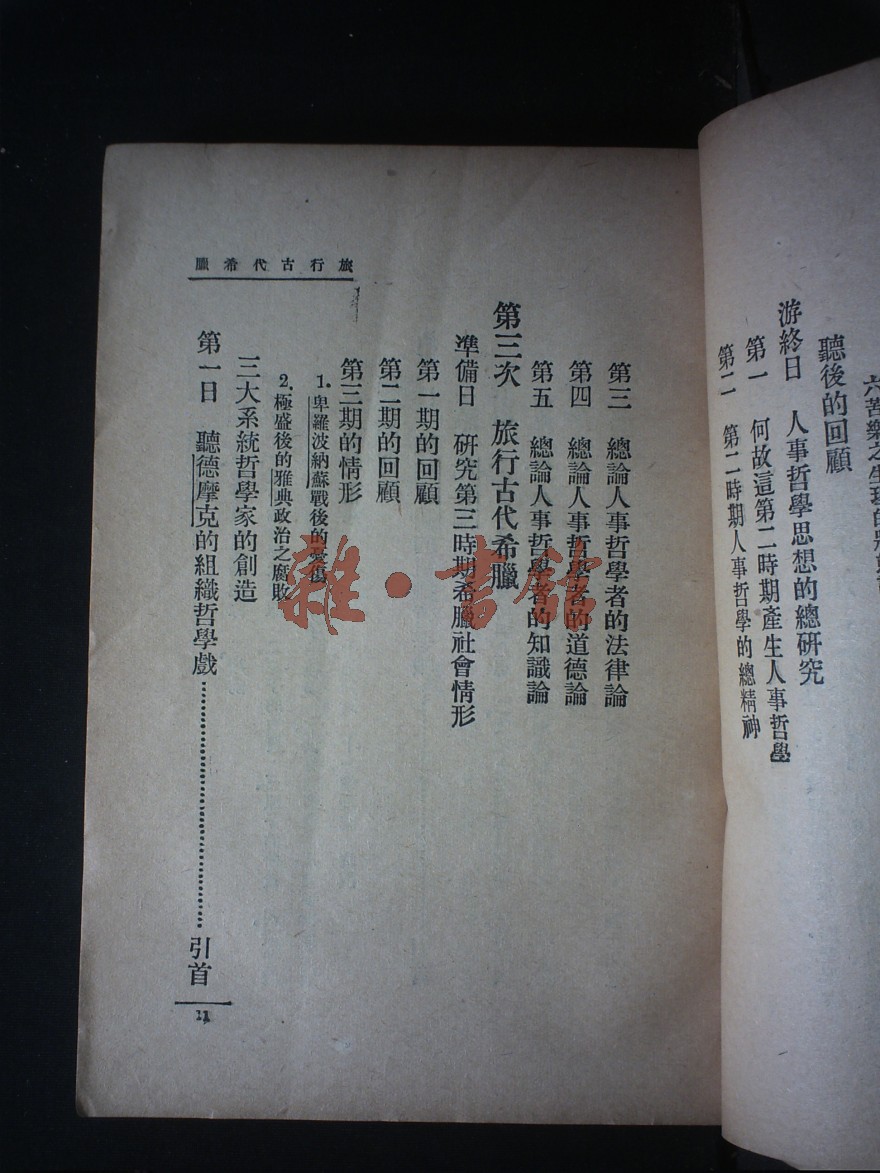 六苦樂之生理的
聽後的回顧
游終日 人事哲學思想的總研究
第一 何故這第二時期產生人事哲學
第二 第二時期人事哲學的總精神
旅行古代希臘
第三 總論人事哲學者的法律論
第四 總論人事哲學者的道德論
第五 總論人事哲學者的知識論
第三次 旅行古代希臘
準備日 研究第三時期希臘社會情形
第一期的回顧
第二期的回顧
第三期的情形
1. 卑羅波納蘇戰後的
2. 極盛後的雅典政治之腐敗
三大系統哲學家的創造
第一日 聽德摩克的組織哲學戲……引首
11
雜·書館